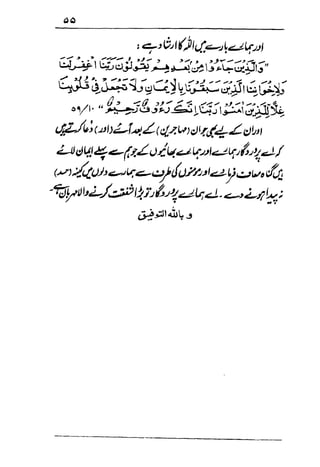 ۵۵
اور ہمارے بارے میں اللہ کا ارشاد ہے :
"وَالَّذِينَ جَاءُوا مِنْ بَعْدِهِمْ يَقُولُونَ رَبَّنَا اغْفِرْ لَنَا
وَلِإِخْوَانِنَا الَّذِينَ سَبَقُونَا بِالْإِيمَانِ وَلَا تَجْعَلْ فِي قُلُوبِنَا
غِلًّا لِلَّذِينَ آمَنُوا رَبَّنَا إِنَّكَ رَءُوفٌ رَحِيمٌ" ۱۰/ ۵۹
اور ان کے لیے بھی جو ان (مہاجرین) کے بعد آئے (اور) دعا کرتے ہیں
کہ اے پروردگار ہمارے اور ہمارے بھائیوں کے جو ہم سے پہلے ایمان لائے
ہیں گناہ معاف فرما اور مومنوں کی طرف سے ہمارے دلوں میں کینہ (حسد)
نہ پیدا ہونے دے۔ اے ہمارے پروردگار تو بڑا شفقت کرنے والا مہربان ہے۔
و باللہ التوفیق